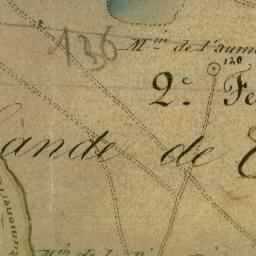 136
Min de l'aum
120
2e Fe
ande de
Min de la